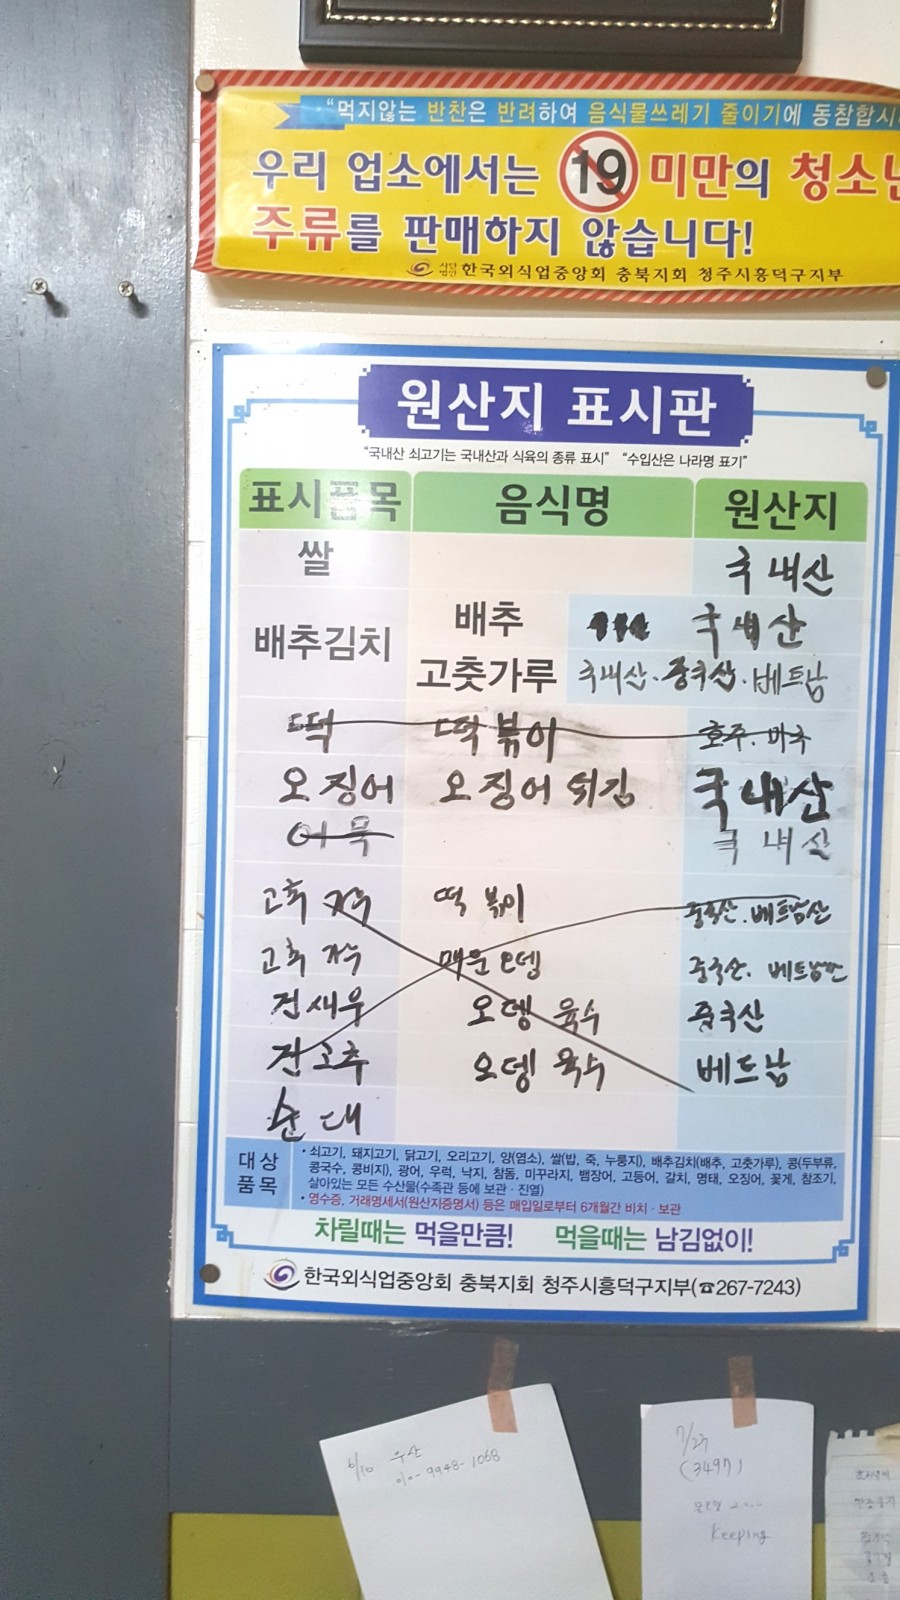 "먹지않는 반찬은 반려하여 음식물쓰레기 줄이기에 동참합시
우리 업소에서는 19 미만의 청소년
주류를 판매하지 않습니다!
사단법인 한국외식업중앙회 충북지회 청주시흥덕구지부
원산지 표시판
"국내산 쇠고기는 국내산과 식육의 종류 표시" "수입산은 나라명 표기"
표시품목 음식명 원산지
쌀 국내산
배추김치 배추 국내산
고춧가루 국내산. 중국산. 베트남
떡 떡볶이 호주. 미국
오징어 오징어 튀김 국내산
어묵 국내산
고추가루 떡볶이 중국산. 베트남산
고추가루 매운오뎅 중국산. 베트남산
건새우 오뎅 육수 중국산
건고추 오뎅 육수 베트남
순대
대상품목
• 쇠고기, 돼지고기, 닭고기, 오리고기, 양(염소), 쌀(밥, 죽, 누룽지), 배추김치(배추, 고춧가루), 콩(두부류,
콩국수, 콩비지), 광어, 우럭, 낙지, 참돔, 미꾸라지, 뱀장어, 고등어, 갈치, 명태, 오징어, 꽃게, 참조기,
살아있는 모든 수산물(수족관 등에 보관 · 진열)
• 영수증, 거래명세서(원산지증명서) 등은 매입일로부터 6개월간 비치 · 보관
차릴때는 먹을만큼! 먹을때는 남김없이!
한국외식업중앙회 충북지회 청주시흥덕구지부(☎267-7243)
6/10 우산
010-9948-1068
7/27
(3497)
Keeping